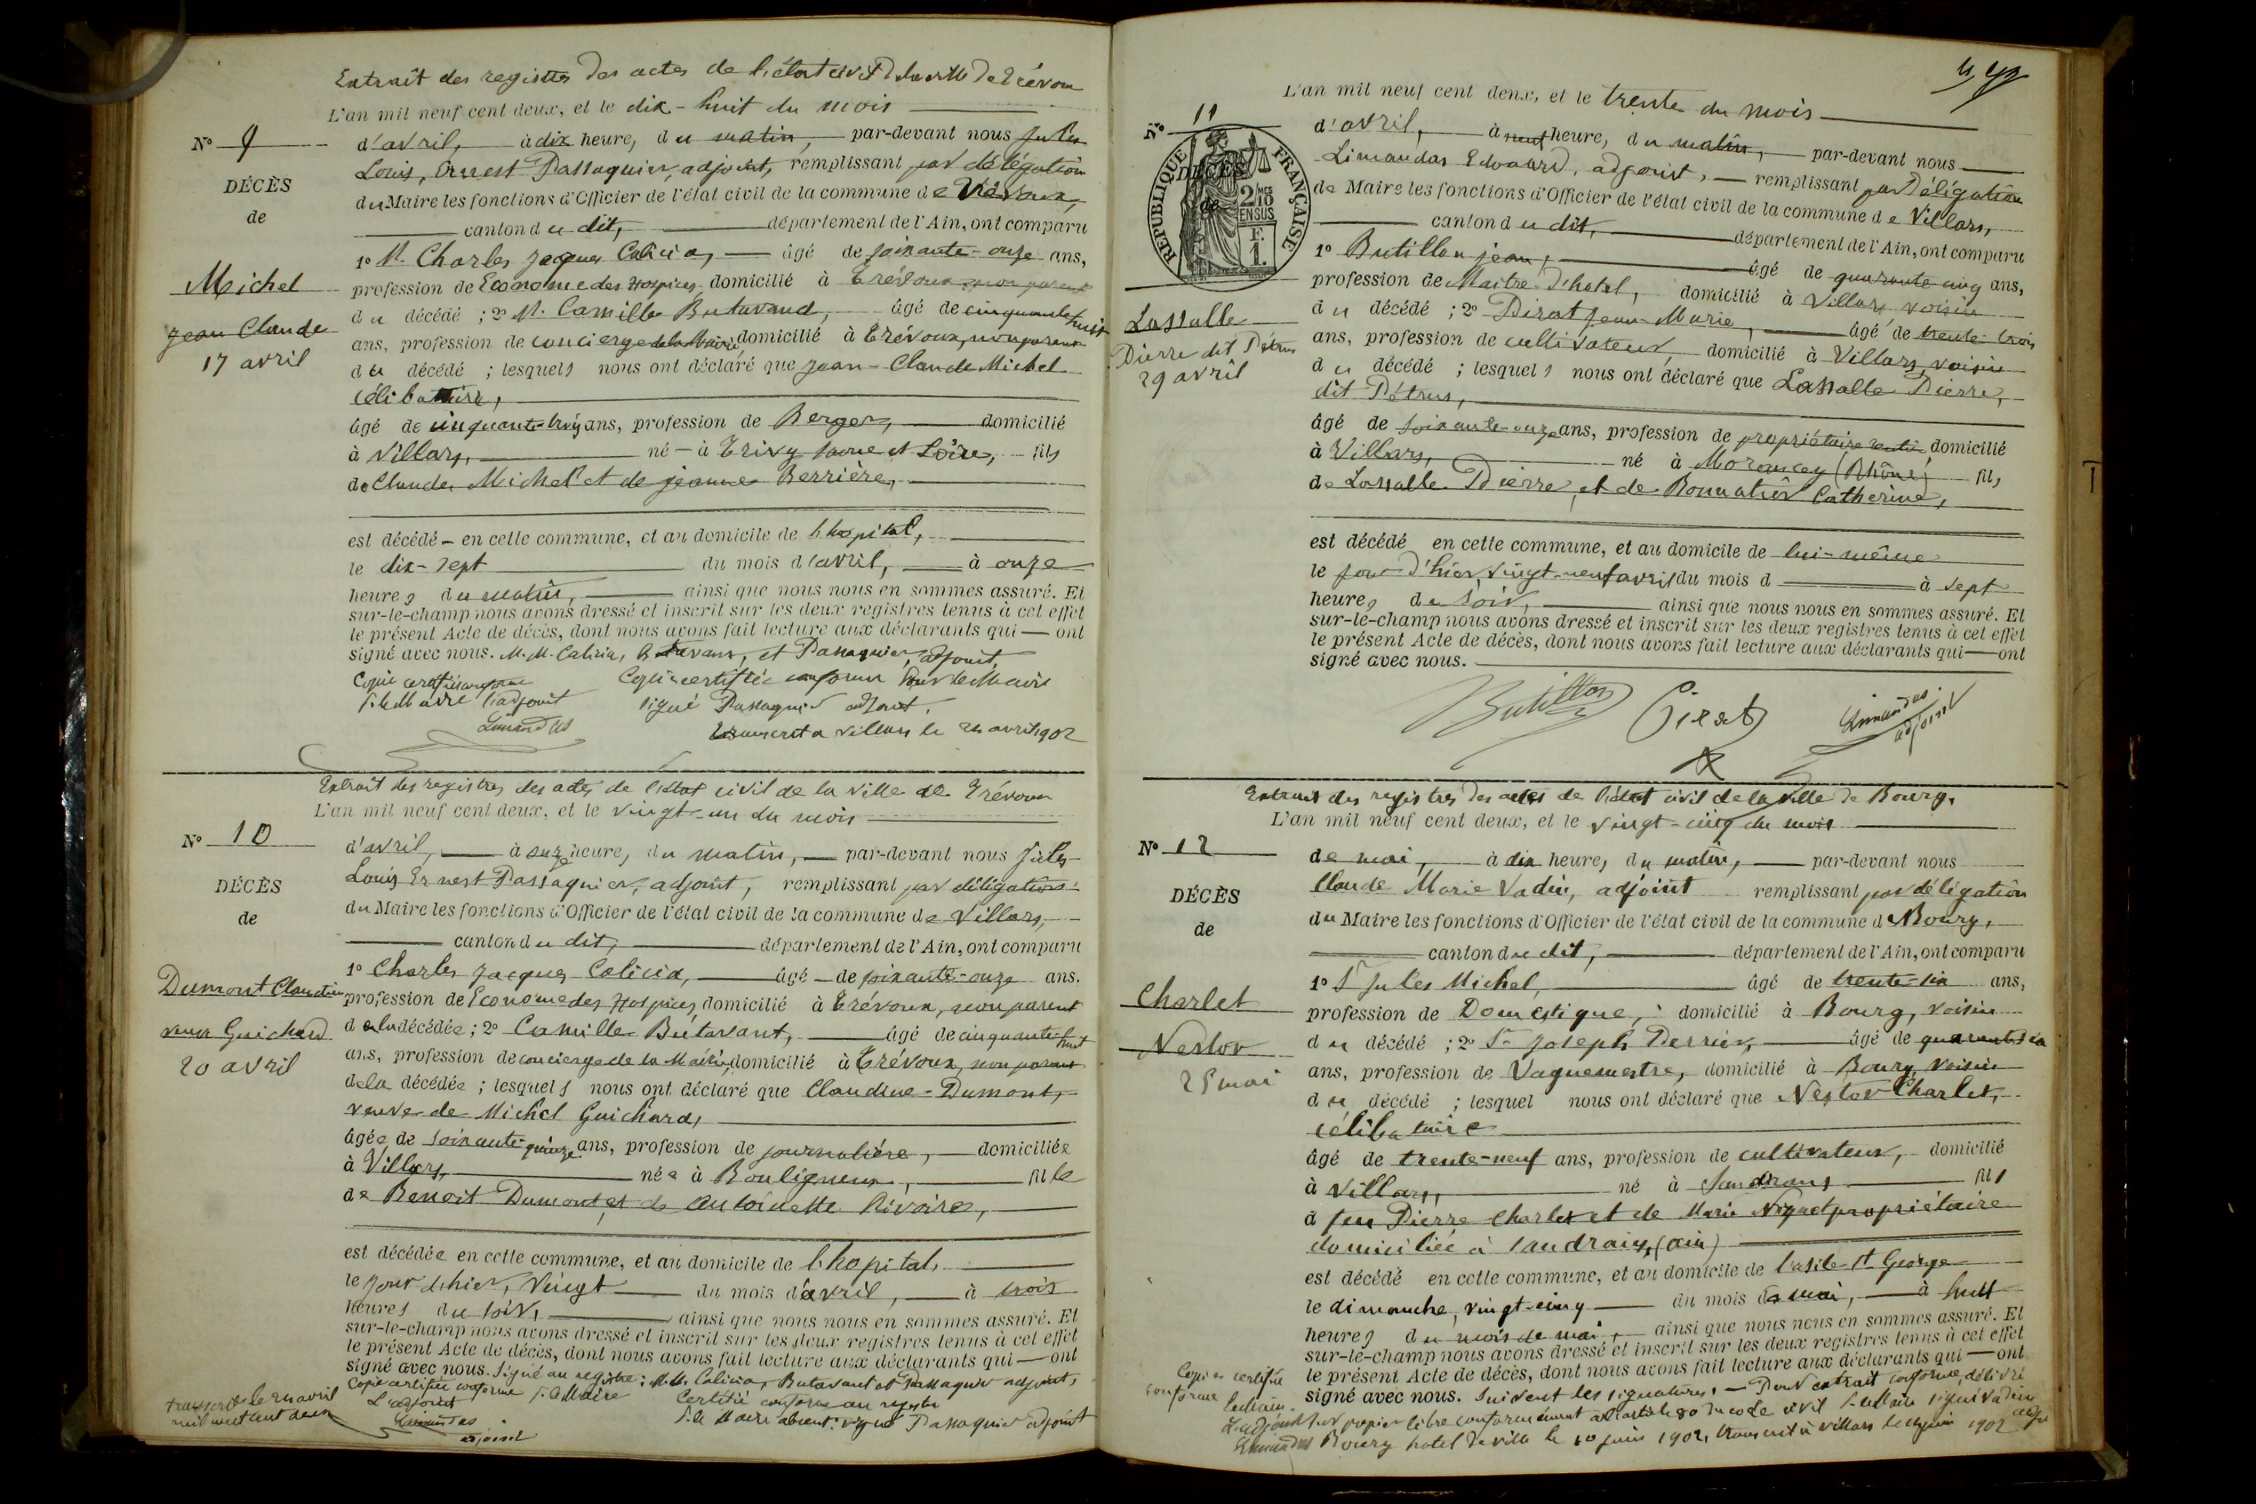 Extrait des registres des actes de l'état civil de la ville de Trévoux
L'an mil neuf cent deux, et le dix-huit du mois
N° 9
d'avril, à dix heure, du matin, par-devant nous Jules
Louis, Ernest Passaquier, adjoint, remplissant par délégation
DÉCÈS
du Maire les fonctions d'Officier de l'état civil de la commune de Trévoux,
de
canton du dit, département de l'Ain, ont comparu
1° M. Charles Jacques Calicia, âgé de soixante-onze ans,
Michel
profession de Econome des Hospices, domicilié à Trévoux non parent
du décédé ; 2° M. Camille Butavand, âgé de cinquante huit
Jean Claude
ans, profession de concierge de la Mairie, domicilié à Trévoux, non parent
17 avril
du décédé ; lesquels nous ont déclaré que Jean-Claude Michel
célibataire,
âgé de cinquante-trois ans, profession de Berger, domicilié
à Villars, né à Trivy Saone et Loire, fils
de Claude Michel et de Jeanne Berrière,
est décédé en cette commune, et au domicile de l'hopital,
le dix-sept du mois d'avril, à onze
heures du matin, ainsi que nous nous en sommes assuré. Et
sur-le-champ nous avons dressé et inscrit sur les deux registres tenus à cet effet
le présent Acte de décès, dont nous avons fait lecture aux déclarants qui ont
signé avec nous. M.M. Calicia, Butavant, et Passaquier, adjoint,
Copie certifiée conforme
P. le Maire l'adjoint
Limandas
Copie certifiée conforme Pour le Maire
signé Passaquier adjoint.
Transcrit à Villars le 21 avril 1902
Extrait des registres des actes de l'état civil de la ville de Trévoux
L'an mil neuf cent deux, et le vingt-un du mois
N° 10
d'avril, à onze heure, du matin, par-devant nous Jules
Louis Ernest Passaquier, adjoint, remplissant par délégation
DÉCÈS
du Maire les fonctions d'Officier de l'état civil de la commune de Villars,
de
canton du dit, département de l'Ain, ont comparu
1° Charles Jacques Calicia, âgé de soixante-onze ans.
Dumont Claudine
profession de Econome des Hospices, domicilié à Trévoux, non parent
de la décédée ; 2° Camille Butavant, âgé de cinquante huit
veuve Guichard
ans, profession de concierge de la Mairie, domicilié à Trévoux, non parent
20 avril
de la décédée ; lesquels nous ont déclaré que Claudine-Dumont,
veuve de Michel Guichard,
âgée de soixante-quinze ans, profession de journalière, domiciliée
à Villars, née à Bouligneux, fille
de Benoit Dumont et de Antoinette Rivoire,
est décédée en cette commune, et au domicile de l'hopital,
le jour d'hier, vingt du mois d'avril, à trois
heures du soir, ainsi que nous nous en sommes assuré. Et
sur-le-champ nous avons dressé et inscrit sur les deux registres tenus à cet effet
le présent Acte de décès, dont nous avons fait lecture aux déclarants qui ont
signé avec nous. Signé au registre : M.M. Calicia, Butavant et Passaquier adjoint,
Copie certifiée conforme P. le Maire
L'adjoint
Limandas
adjoint
Certifié conforme au registre
P. le Maire absent : signé Passaquier adjoint
L'an mil neuf cent deux, et le trente du mois
N° 11
d'avril, à neuf heure, du matin, par-devant nous
Limandas Edouard, adjoint, remplissant par Délégation
RÉPUBLIQUE FRANÇAISE
DÉCÈS
2/10 EN SUS
F. 1.
de Maire les fonctions d'Officier de l'état civil de la commune de Villars,
de
canton du dit, département de l'Ain, ont comparu
1° Butillon Jean, âgé de quarante cinq ans,
profession de Maitre d'hotel, domicilié à Villars voisin
Lassalle
du décédé ; 2° Pirat Jean-Marie, âgé de trente-trois
Pierre dit Pétrus
ans, profession de cultivateur, domicilié à Villars, voisin
29 avril
du décédé ; lesquels nous ont déclaré que Lassalle Pierre,
dit Pétrus,
âgé de soixante-onze ans, profession de propriétaire rentier, domicilié
à Villars, né à Morancey (Rhône) fils
de Lassalle Pierre, et de Bonnatier Catherine,
est décédé en cette commune, et au domicile de lui-même
le jour d'hier, vingt-neuf avril du mois d à sept
heures du soir, ainsi que nous nous en sommes assuré. Et
sur-le-champ nous avons dressé et inscrit sur les deux registres tenus à cet effet
le présent Acte de décès, dont nous avons fait lecture aux déclarants qui ont
signé avec nous.
Butillon Pirat Limandas adjoint
Extrait des registres des actes de l'état civil de la ville de Bourg,
L'an mil neuf cent deux, et le vingt-cinq du mois
N° 12
de mai, à dix heure, du matin, par-devant nous
Claude Marie Vadin, adjoint remplissant par délégation
DÉCÈS
du Maire les fonctions d'Officier de l'état civil de la commune de Bourg,
de
canton du dit, département de l'Ain, ont comparu
1° Sr Jules Michel, âgé de trente-six ans,
Charlet
profession de Domestique, domicilié à Bourg, voisin
Nestor
du décédé ; 2° Sr Joseph Perrier, âgé de quarante six
25 mai
ans, profession de Vaguemestre, domicilié à Bourg, voisin
du décédé ; lesquel nous ont déclaré que Nestor Charlet,
célibataire
âgé de trente-neuf ans, profession de cultivateur, domicilié
à Villars, né à Sandrans fils
à feu Pierre Charlet et de Marie Niquet propriétaire
domiciliée à Sandrans, (Ain)
est décédé en cette commune, et au domicile de l'asile St George
le dimanche, vingt-cinq du mois de mai, à huit
heures du mois de mai, ainsi que nous nous en sommes assuré. Et
sur-le-champ nous avons dressé et inscrit sur les deux registres tenus à cet effet
le présent Acte de décès, dont nous avons fait lecture aux déclarants qui ont
signé avec nous. Suivent les signatures. Pour extrait conforme, délivré
sur papier libre conformément à l'article 80 du code civil P. le Maire signé Vadin
Bourg hotel de ville le 10 juin 1902, transcrit à Villars le juin 1902
Copie certifiée
conforme
L'adjoint
Limandas